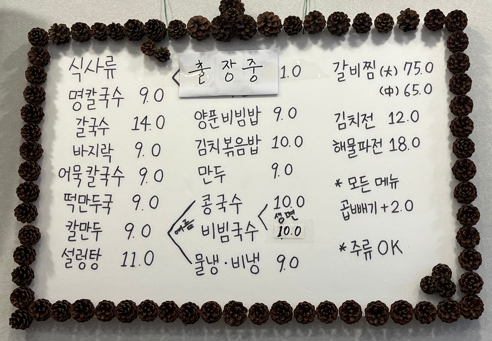 식사류
명칼국수 9.0
갈국수 14.0
바지락 9.0
어묵칼국수 9.0
떡만두국 9.0
칼만두 9.0
설렁탕 11.0
출장중 1.0
양푼비빔밥 9.0
김치볶음밥 10.0
만두 9.0
여름
콩국수 10.0
생면
비빔국수 10.0
물냉·비냉 9.0
갈비찜 (大) 75.0
(中) 65.0
김치전 12.0
해물파전 18.0
* 모든 메뉴
곱빼기 +2.0
* 주류 OK